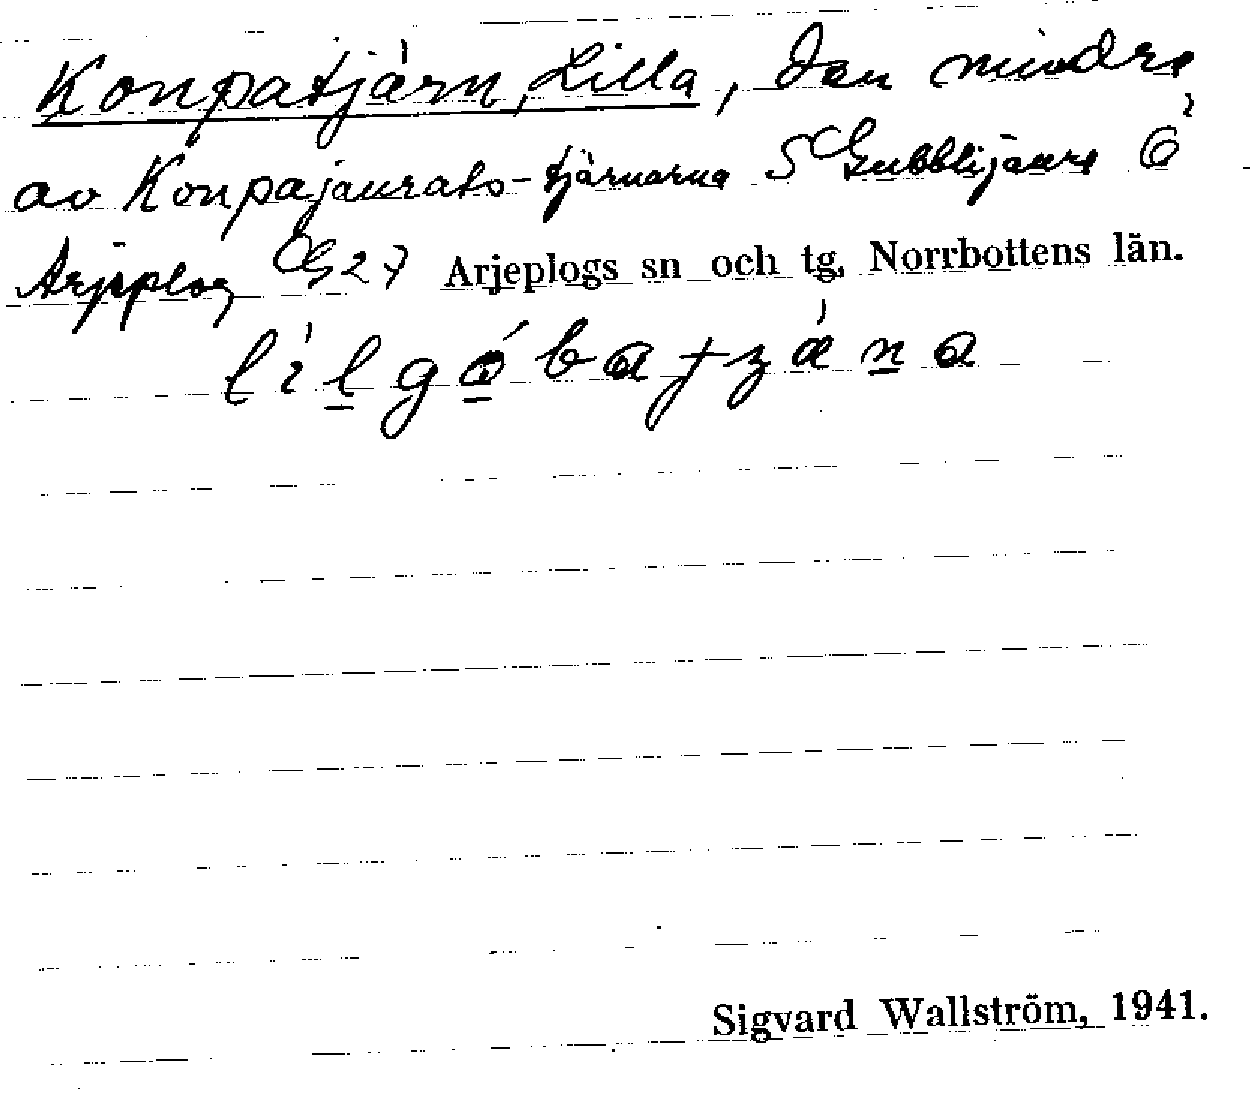 Konpatjärn, Lilla, Den mindre
av Konpajaurats-tjärnarna S Gubblijaure Ö
Arjeplog G27 Arjeplogs sn och tg, Norrbottens län.
Sigvard Wallström, 1941.